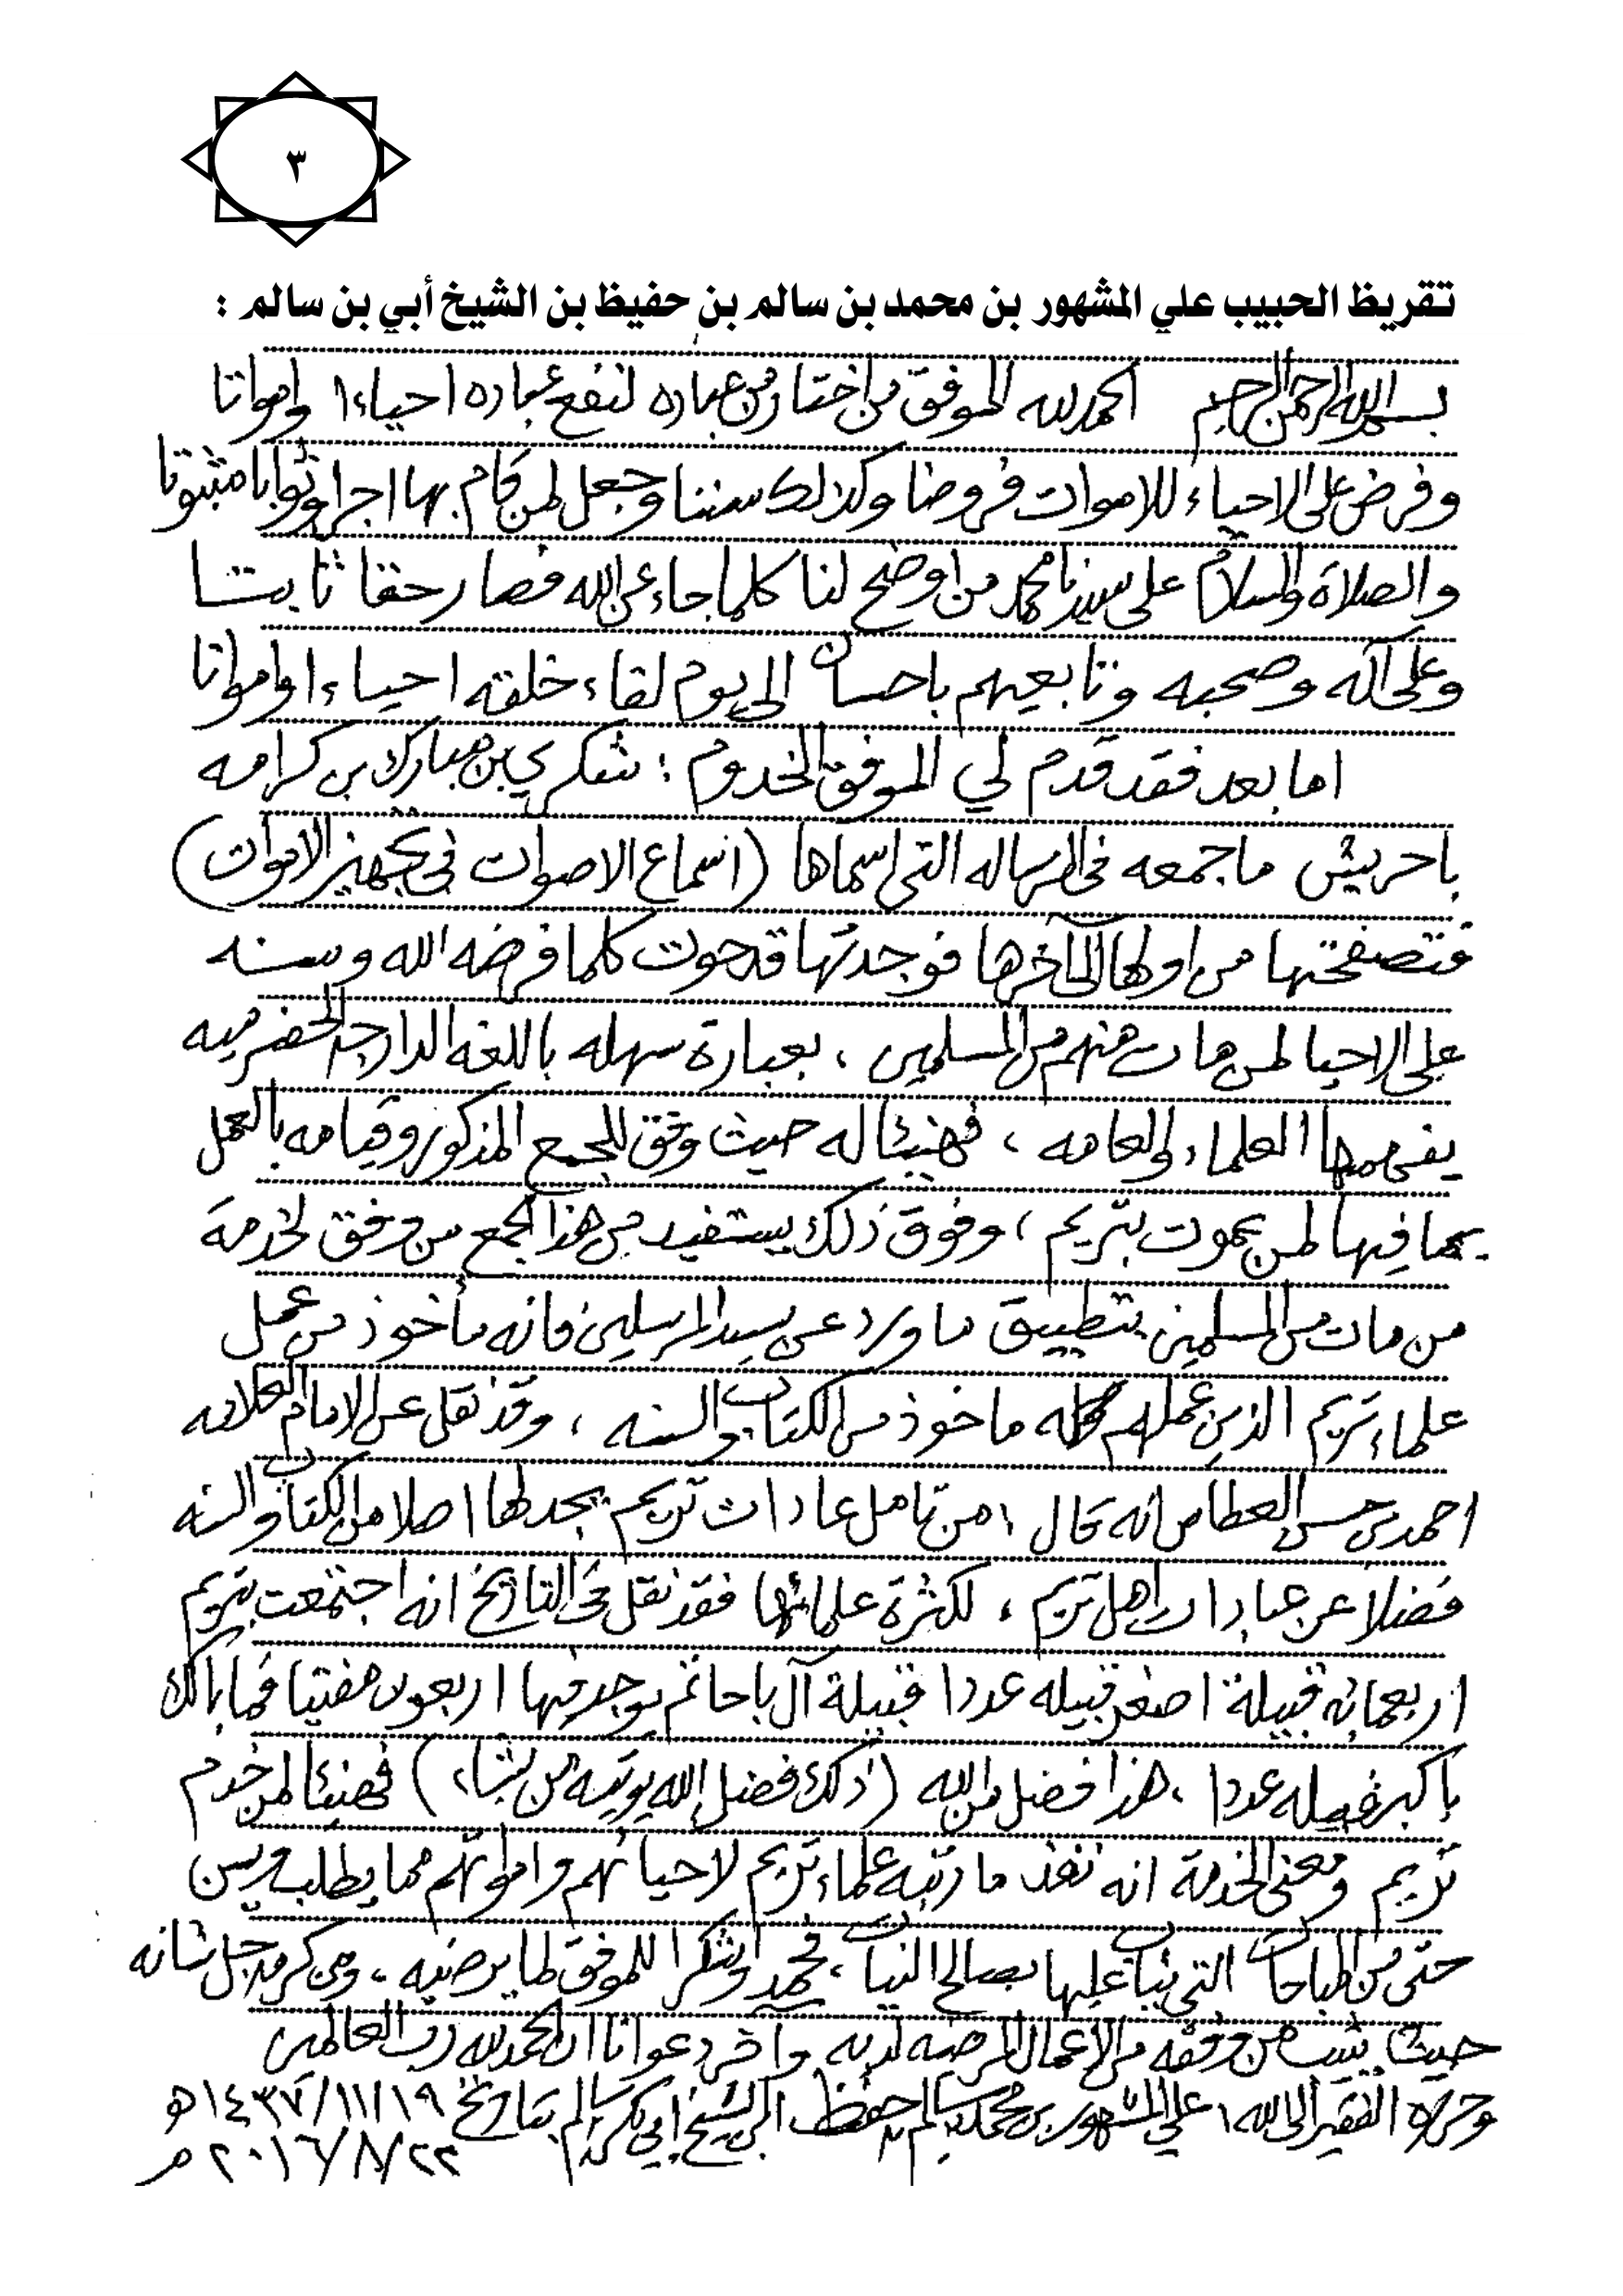 ٣
تقريظ الحبيب علي المشهور بن محمد بن سالم بن حفيظ بن الشيخ أبي بن سالم :
بسم الله الرحمن الرحيم الحمد لله الموفق من اختار من عباده لنفع عباده احياءا وامواتا
وفرض على الاحياء للاموات فروضا وكذالك سننا وجعل لمن قام بها اجرا وثوابا مثبوتا
والصلاة والسلام على سيدنا محمد من اوضح لنا كلما جاء عن الله فصار حقا ثابتا
وعلى آله وصحبه وتابعيهم باحسان الى يوم لقاء خلقه احياءا وامواتا
اما بعد فقد قدم لي الموفق الخدوم : شكري بن مبارك بن كرامه
باحريش ماجمعه في الرساله التي اسماها (اسماع الاصوات في تجهيز الاموات)
فتصفحتها من اولها الى آخرها فوجدتها قد حوت كلما فرضه الله وسنه
على الاحيا لمن مات منهم من المسلمين ، بعبارة سهله باللغه الدارجه الحضرميه
يفهمها العلماء والعامه ، فهنيئا له حيث وفق للجمع المذكور وقيامه بالعمل
بما فيها لمن يموت بتريم ، وفوق ذلك يستفيد من هذا الجمع من وفق لخدمة
من مات من المسلمين بتطبيق ما ورد عن سيد المرسلين فانه مأخوذ من عمل
علماء تريم الذين عملهم كله ماخوذ من الكتاب والسنه ، وقد نقل عن الامام العلامه
احمد بن حسن العطاس انه قال ، من تامل عادات تريم يجد لها اصلا من الكتاب والسنه
فضلا عن عبادات اهل تريم ، لكثرة علمائها فقد نقل في التاريخ انه اجتمعت بتريم
اربعمائه قبيلة اصغر قبيله عددا قبيلة آل باحاتم يوجد فيها اربعون مفتيا فما بالك
باكبر قبيله عددا ، هذا فضل من الله (ذلك فضل الله يوتيه من يشاء) فهنيئا لمن خدم
تريم ومعنى الخدمة انه نفذ ما رتبه علماء تريم لاحيائهم وامواتهم مما يطلب ويسن
حتى من المباحات التي يثاب عليها بصالح النيات ، فحمدا وشكرا للموفق لما يرضيه ، ومن كرمه جل شانه
حيث يثيب من وفقه من الاعمال المرضيه لديه واخر دعوانا ان الحمد لله رب العالمين
وحرره الفقير الى الله ، علي المشهور بن محمد بن سالم بن حفيظ ابن الشيخ ابي بكر بن سالم بتاريخ ١٤٣٧/١١/١٩ هـ
٢٠١٦/٨/٢٢ م